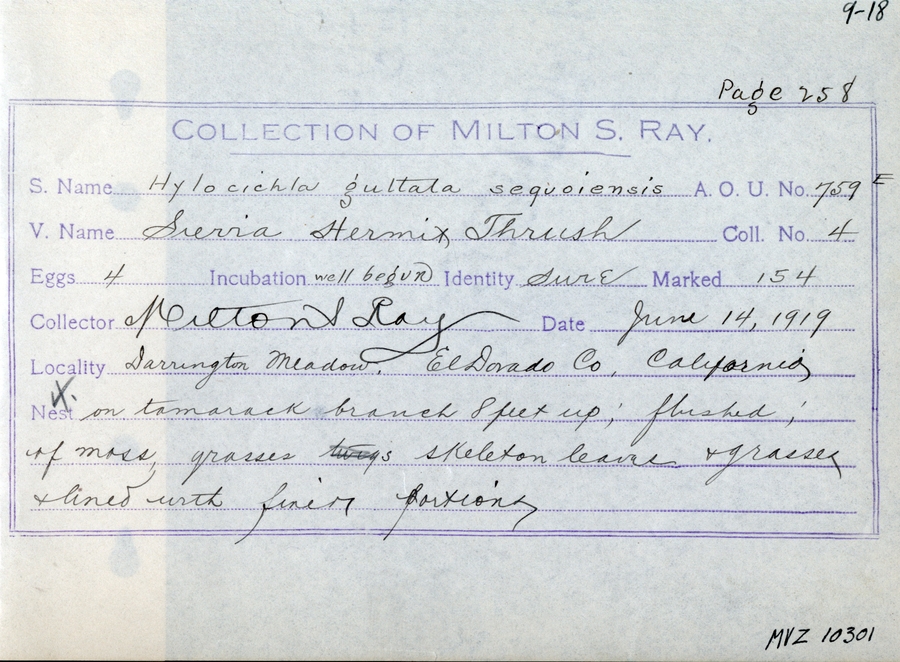 9-18
Page 258
COLLECTION OF MILTON S. RAY.
S. Name Hylocichla guttata sequoiensis A. O. U. No. 759 E
V. Name Sierra Hermit Thrush Coll. No. 4
Eggs 4 Incubation well begun Identity sure Marked 154
Collector Milton S Ray Date June 14, 1919
Locality Darrington Meadow, El Dorado Co, California
X.
Nest on tamarack branch 8 feet up; flushed;
of moss, grasses twigs skeleton leaves & grasses
& lined with finer portions
MVZ 10301